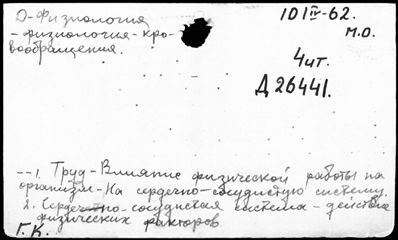 О-Физиология
-физиология-кро-
вообращения.
101 IV-62.
м.о.
4 ит.
Д 26441.
--1. Труд-Влияние физической работы на
организм-На сердечно-сосудистую систему
2. Сердечно-сосудистая система - действие
физических факторов
Г.К.